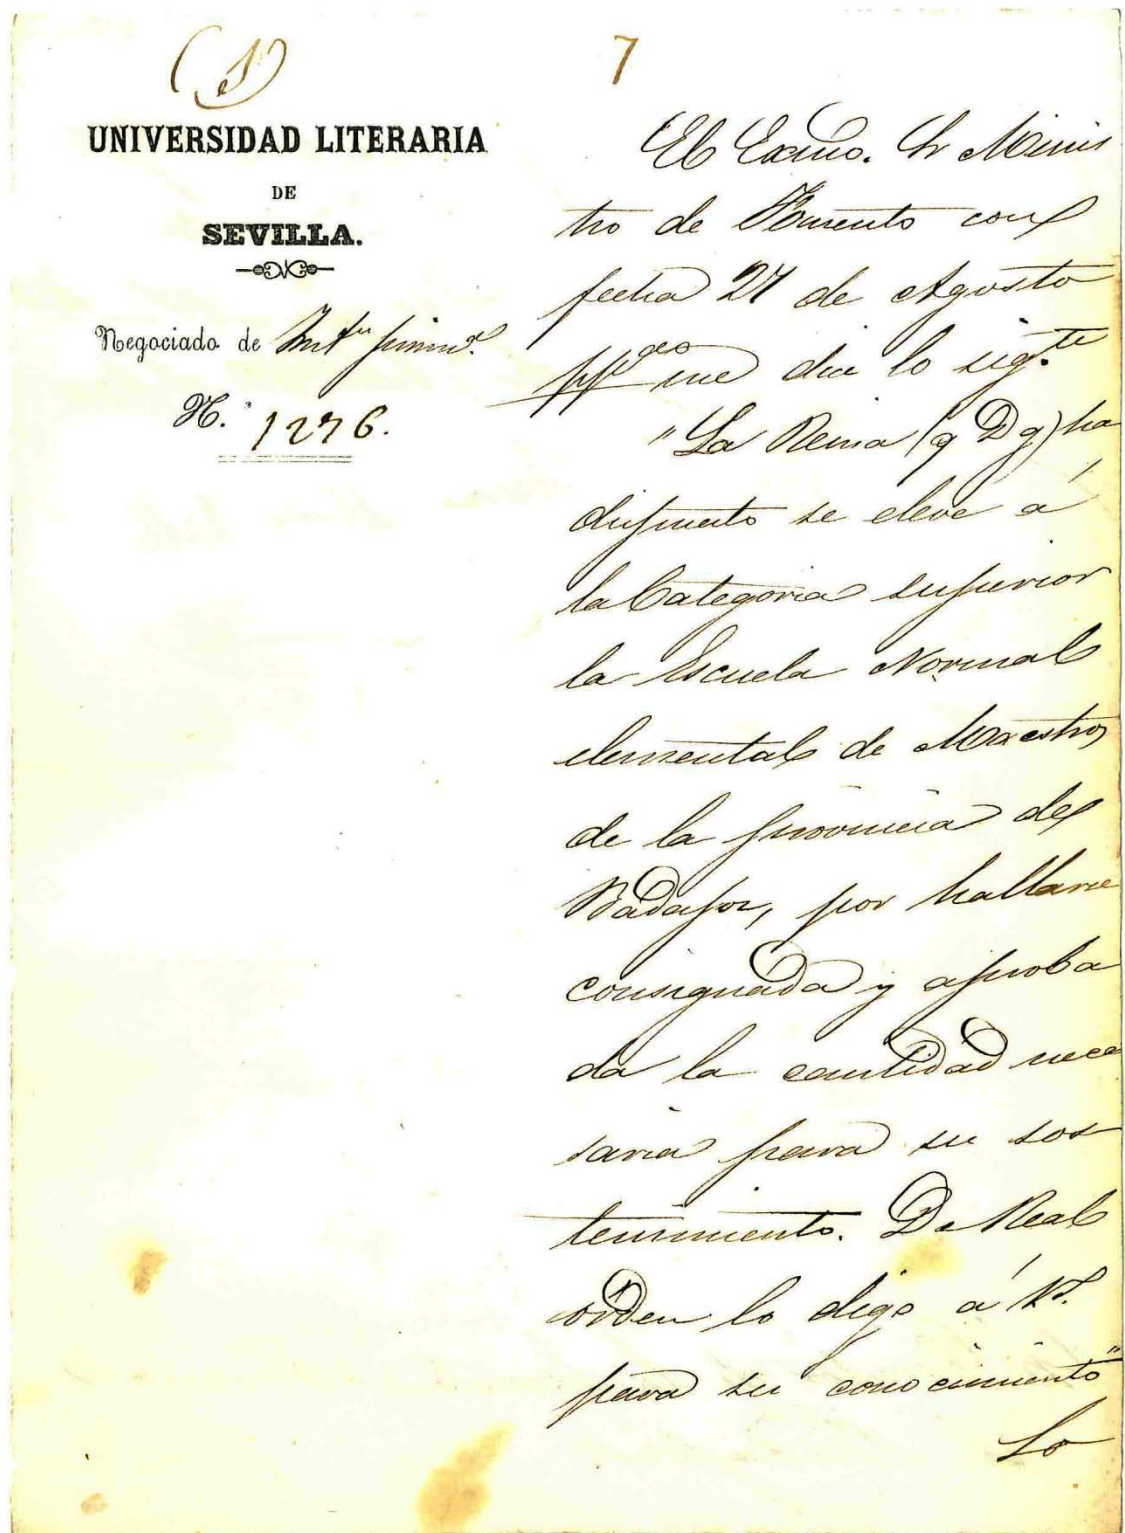 (1)
7
UNIVERSIDAD LITERARIA
DE
SEVILLA.
Negociado de
N.º 1276.
El Excmo. Sr Minis
tro de Fomento con
fecha 27 de Agosto
pp.do me dice lo sig.te
"La Reina (q D g) ha
dispuesto se eleve á
la Categoria superior
la Escuela Normal
elemental de Maestros
de la provincia de
Badajoz, por hallarse
consignada y aproba
da la cantidad nece
saria para su sos
tenimiento. De Real
orden lo digo á V.
para su conocimiento"
Lo